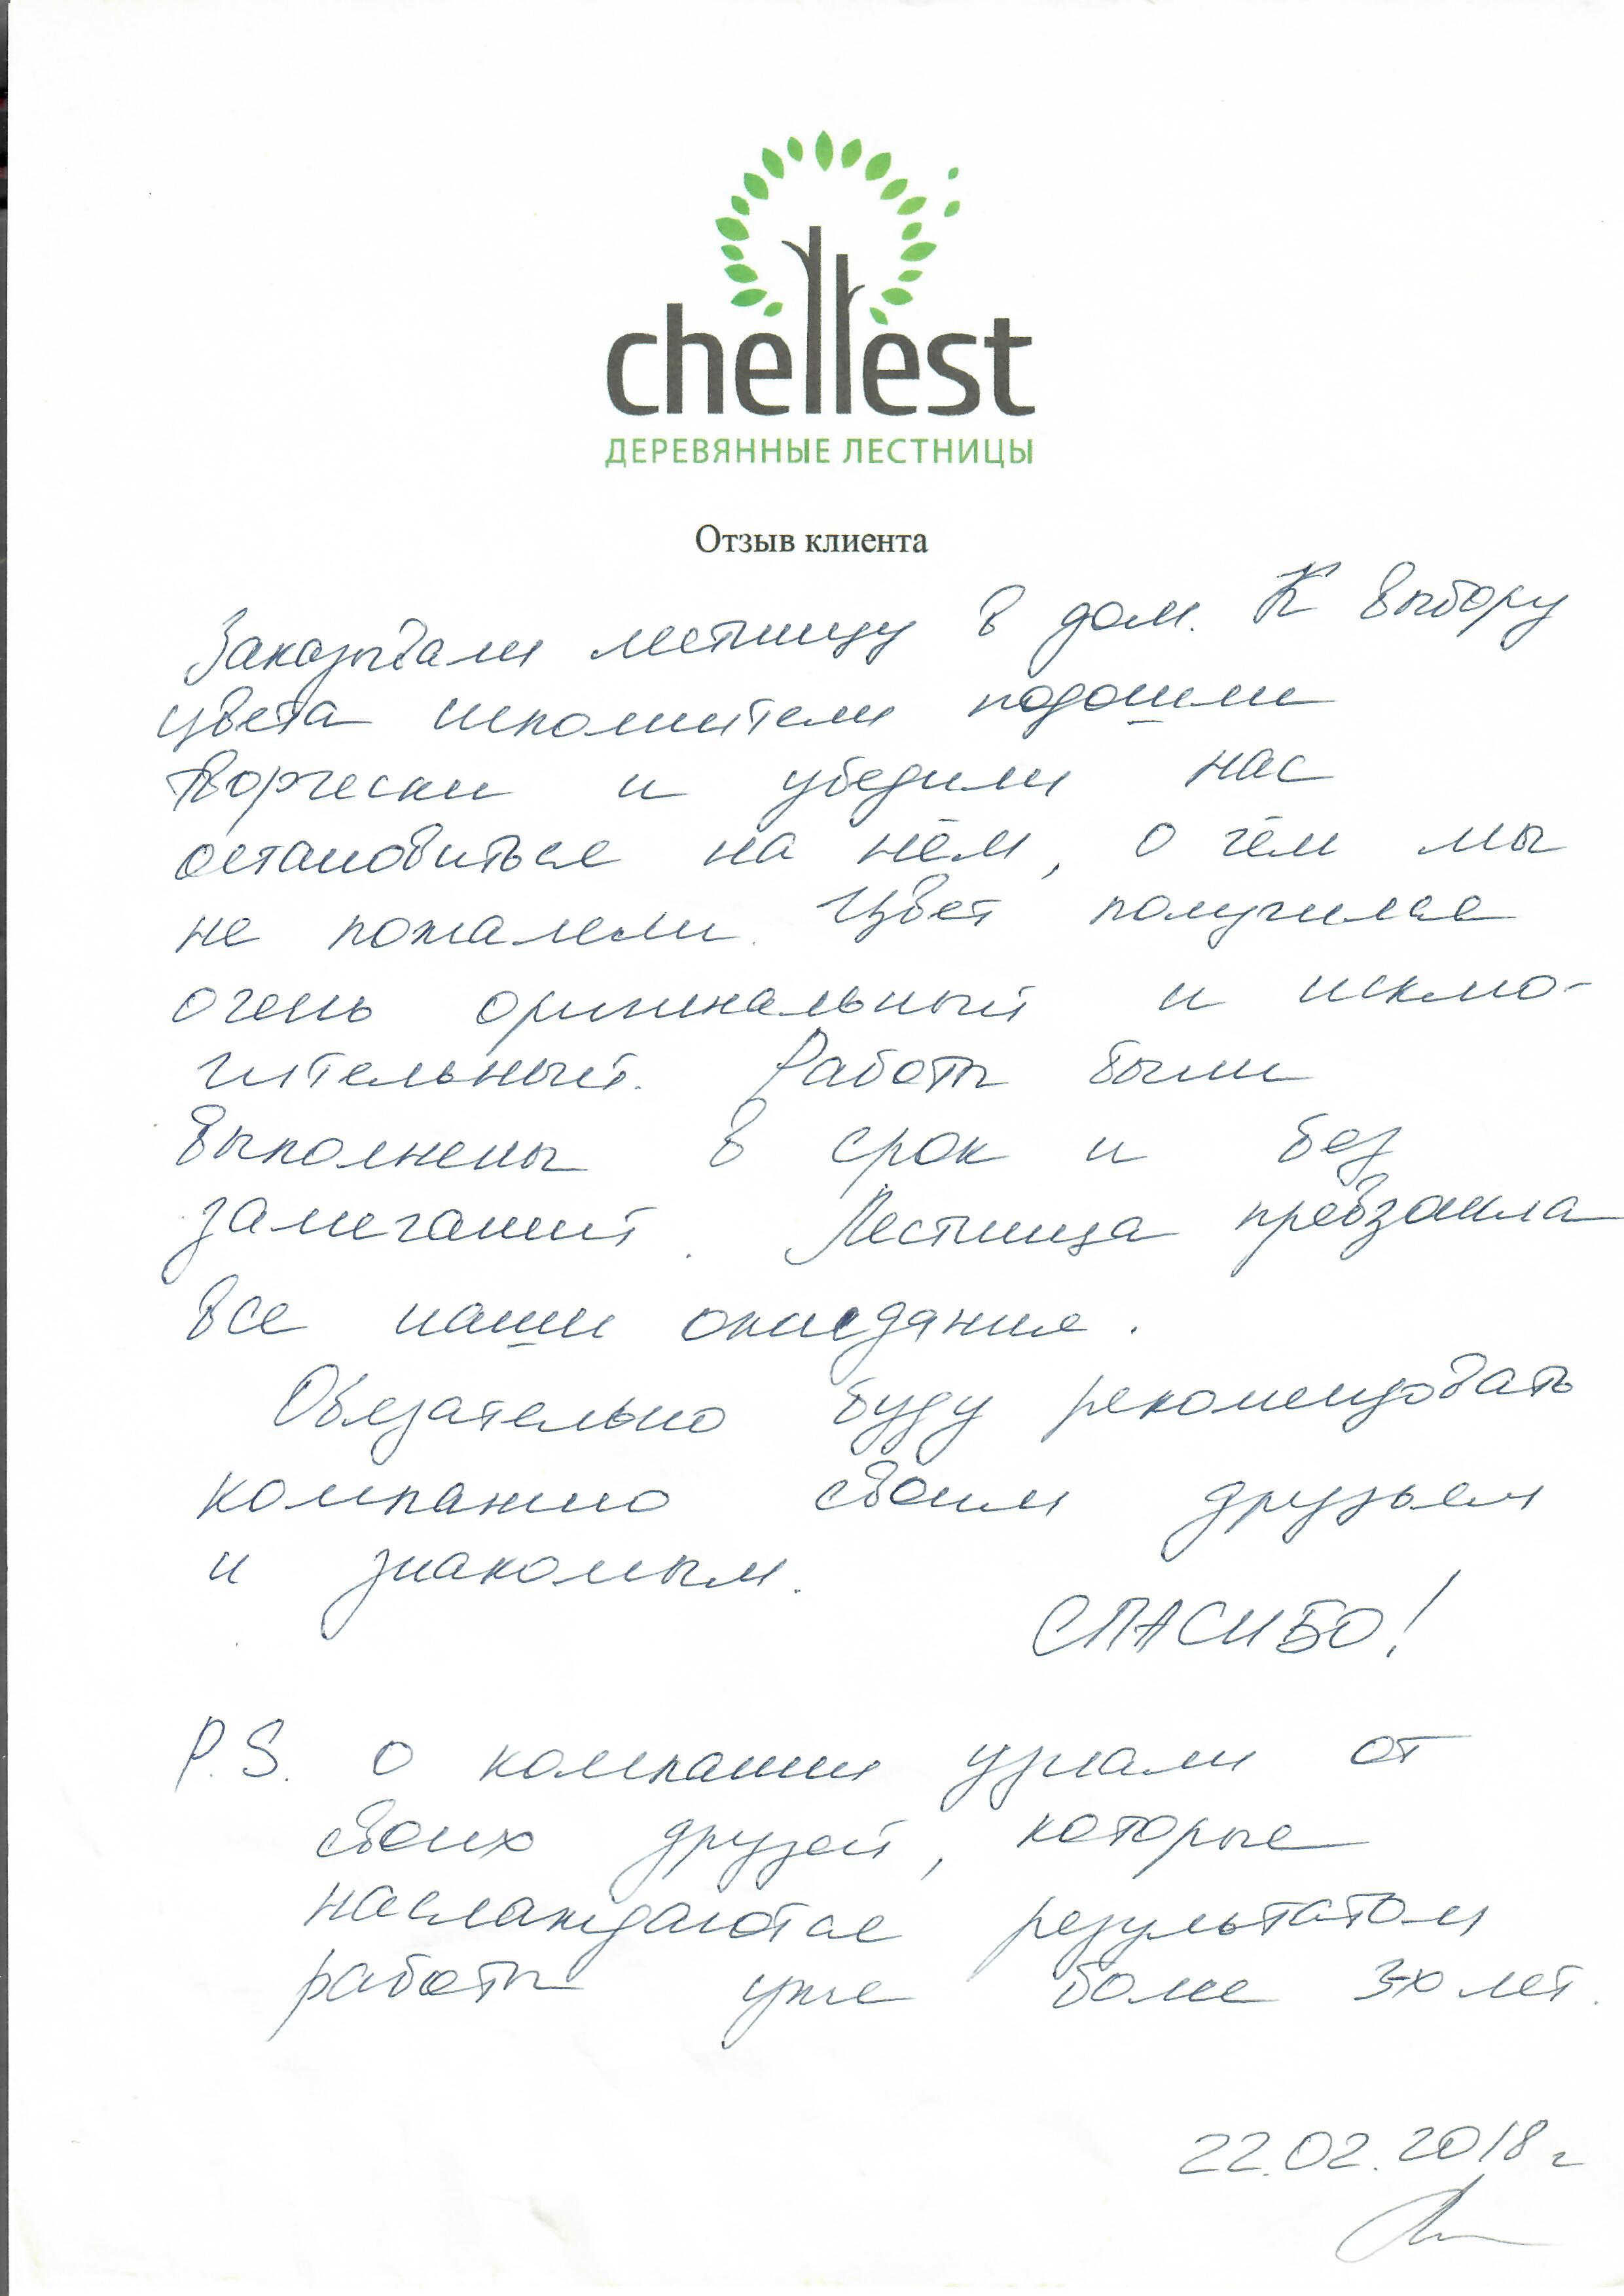 chellest
ДЕРЕВЯННЫЕ ЛЕСТНИЦЫ
Отзыв клиента
Заказывали лестницу в дом. К выбору
цвета исполнители подошли
творчески и убедили нас
остановиться на нём, о чём мы
не пожалели. Цвет получился
очень оригинальный и исклю-
чительный. Работы были
выполнены в срок и без
замечаний. Лестница превзошла
все наши ожидания.
Обязательно буду рекомендовать
компанию своим друзьям
и знакомым.
СПАСИБО!
P.S. О компании узнали от
своих друзей, которые
наслаждаются результатом
работы уже более 3-х лет.
22.02.2018 г